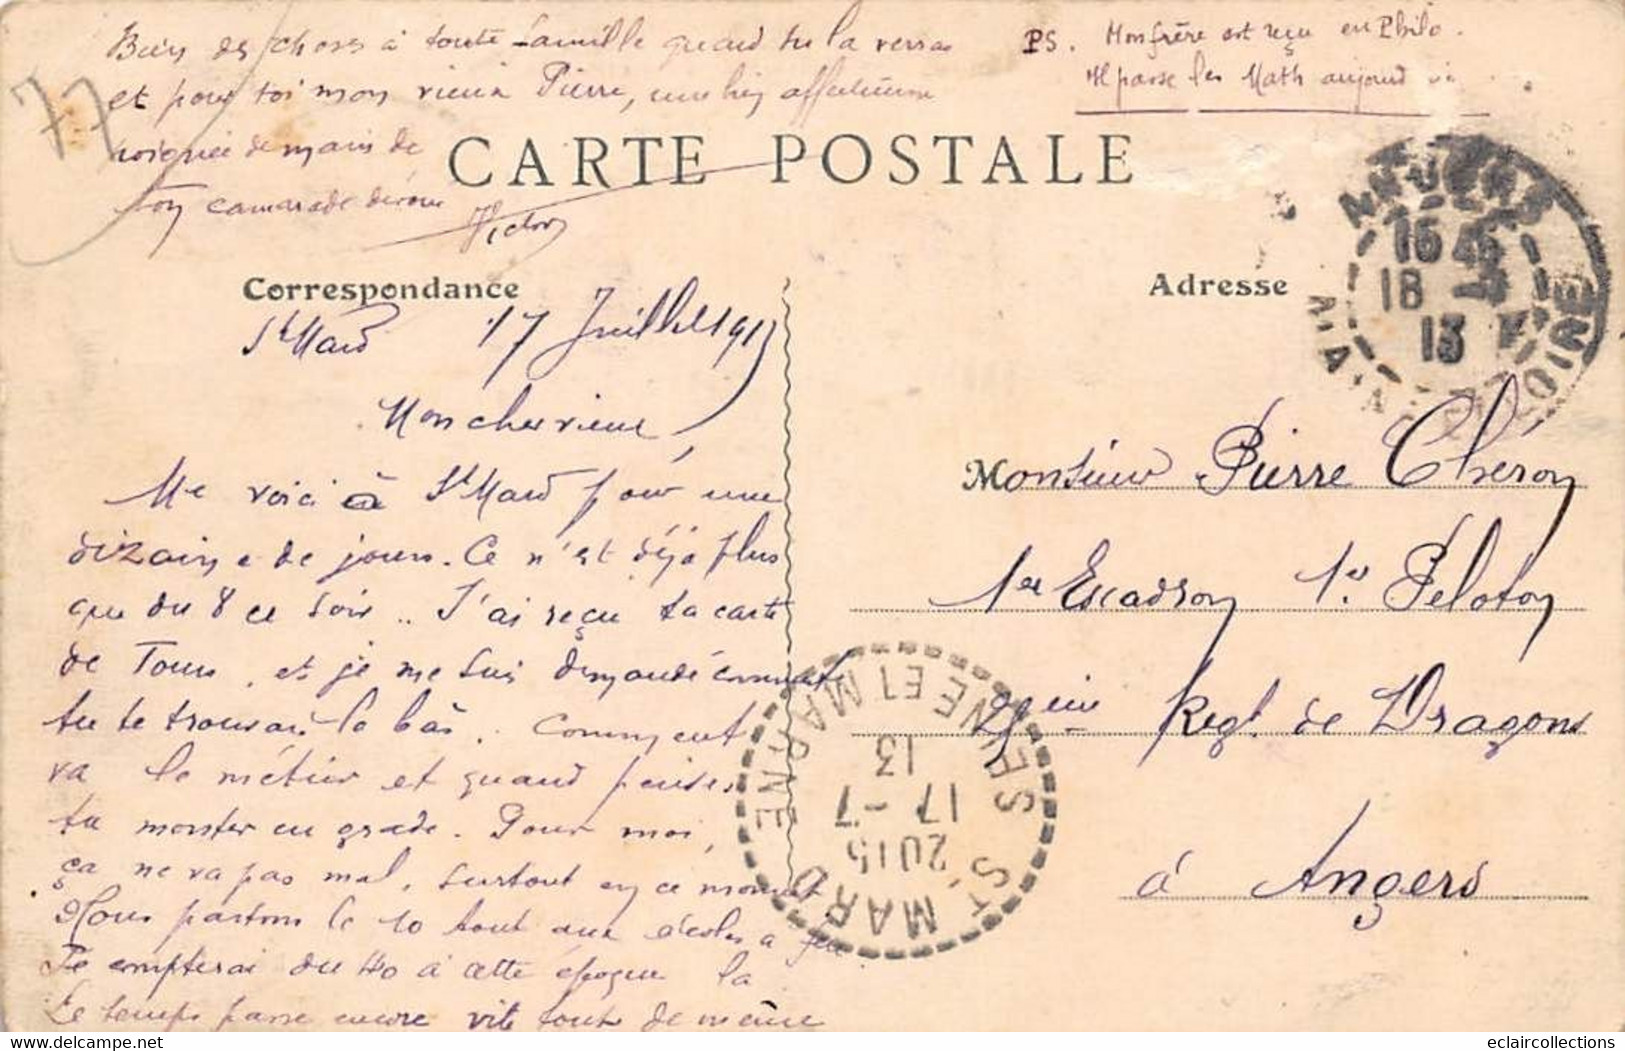 Bien des choses à toute famille quand tu la verras
et pour toi mon vieux Pierre, une
soignée de mains de
ton camarade dévoué
Victor
PS. Mon frère est reçu en Philo.
Il passe les Math aujourd'
77
CARTE POSTALE
Correspondance
Adresse
St Mard 17 Juillet 1913
Mon cher vieux,
Me voici à St Mard pour une
dizaine de jours. Ce n'est déjà plus
que du 8 ce soir.. J'ai reçu ta carte
de Tours, et je me suis demandé comment
tu te trouvais là bas. Comment
va le métier et quand penses
tu monter en grade. Pour moi,
ça ne va pas mal, surtout en ce moment
Nous partons le 10 aout aux écoles à feu
Je compterai du 40 à cette époque là
Le temps passe encore vite tout de même
Monsieur Pierre Chéron
1er Escadron 1er Peloton
Regt de Dragons
à Angers
ANGERS
16 45
18 -7
13
ST MARD
SEINE ET MARNE
2015
17 -7
13
eclaircollections